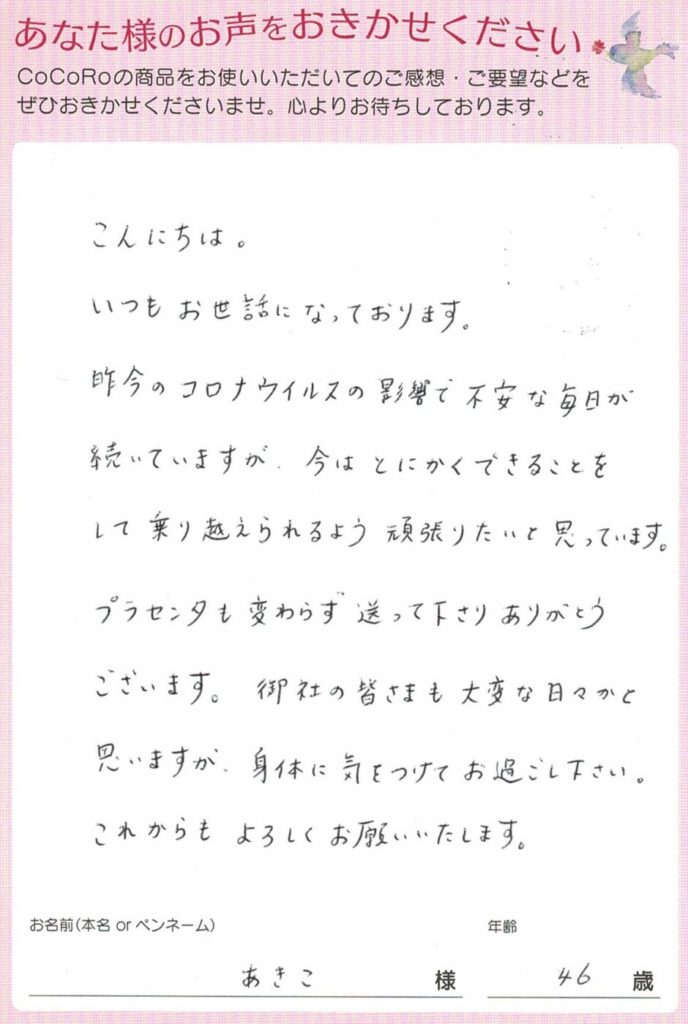 あなた様のお声をおきかせください
CoCoRoの商品をお使いいただいてのご感想・ご要望などを
ぜひおきかせくださいませ。心よりお待ちしております。
こんにちは。
いつもお世話になっております。
昨今のコロナウイルスの影響で不安な毎日が
続いていますが、今はとにかくできることを
して乗り越えられるよう頑張りたいと思っています。
プラセンタも変わらず送って下さりありがとう
ございます。御社の皆さまも大変な日々かと
思いますが、身体に気をつけてお過ごし下さい。
これからもよろしくお願いいたします。
お名前(本名 or ペンネーム) 年齢
あきこ 様 46 歳